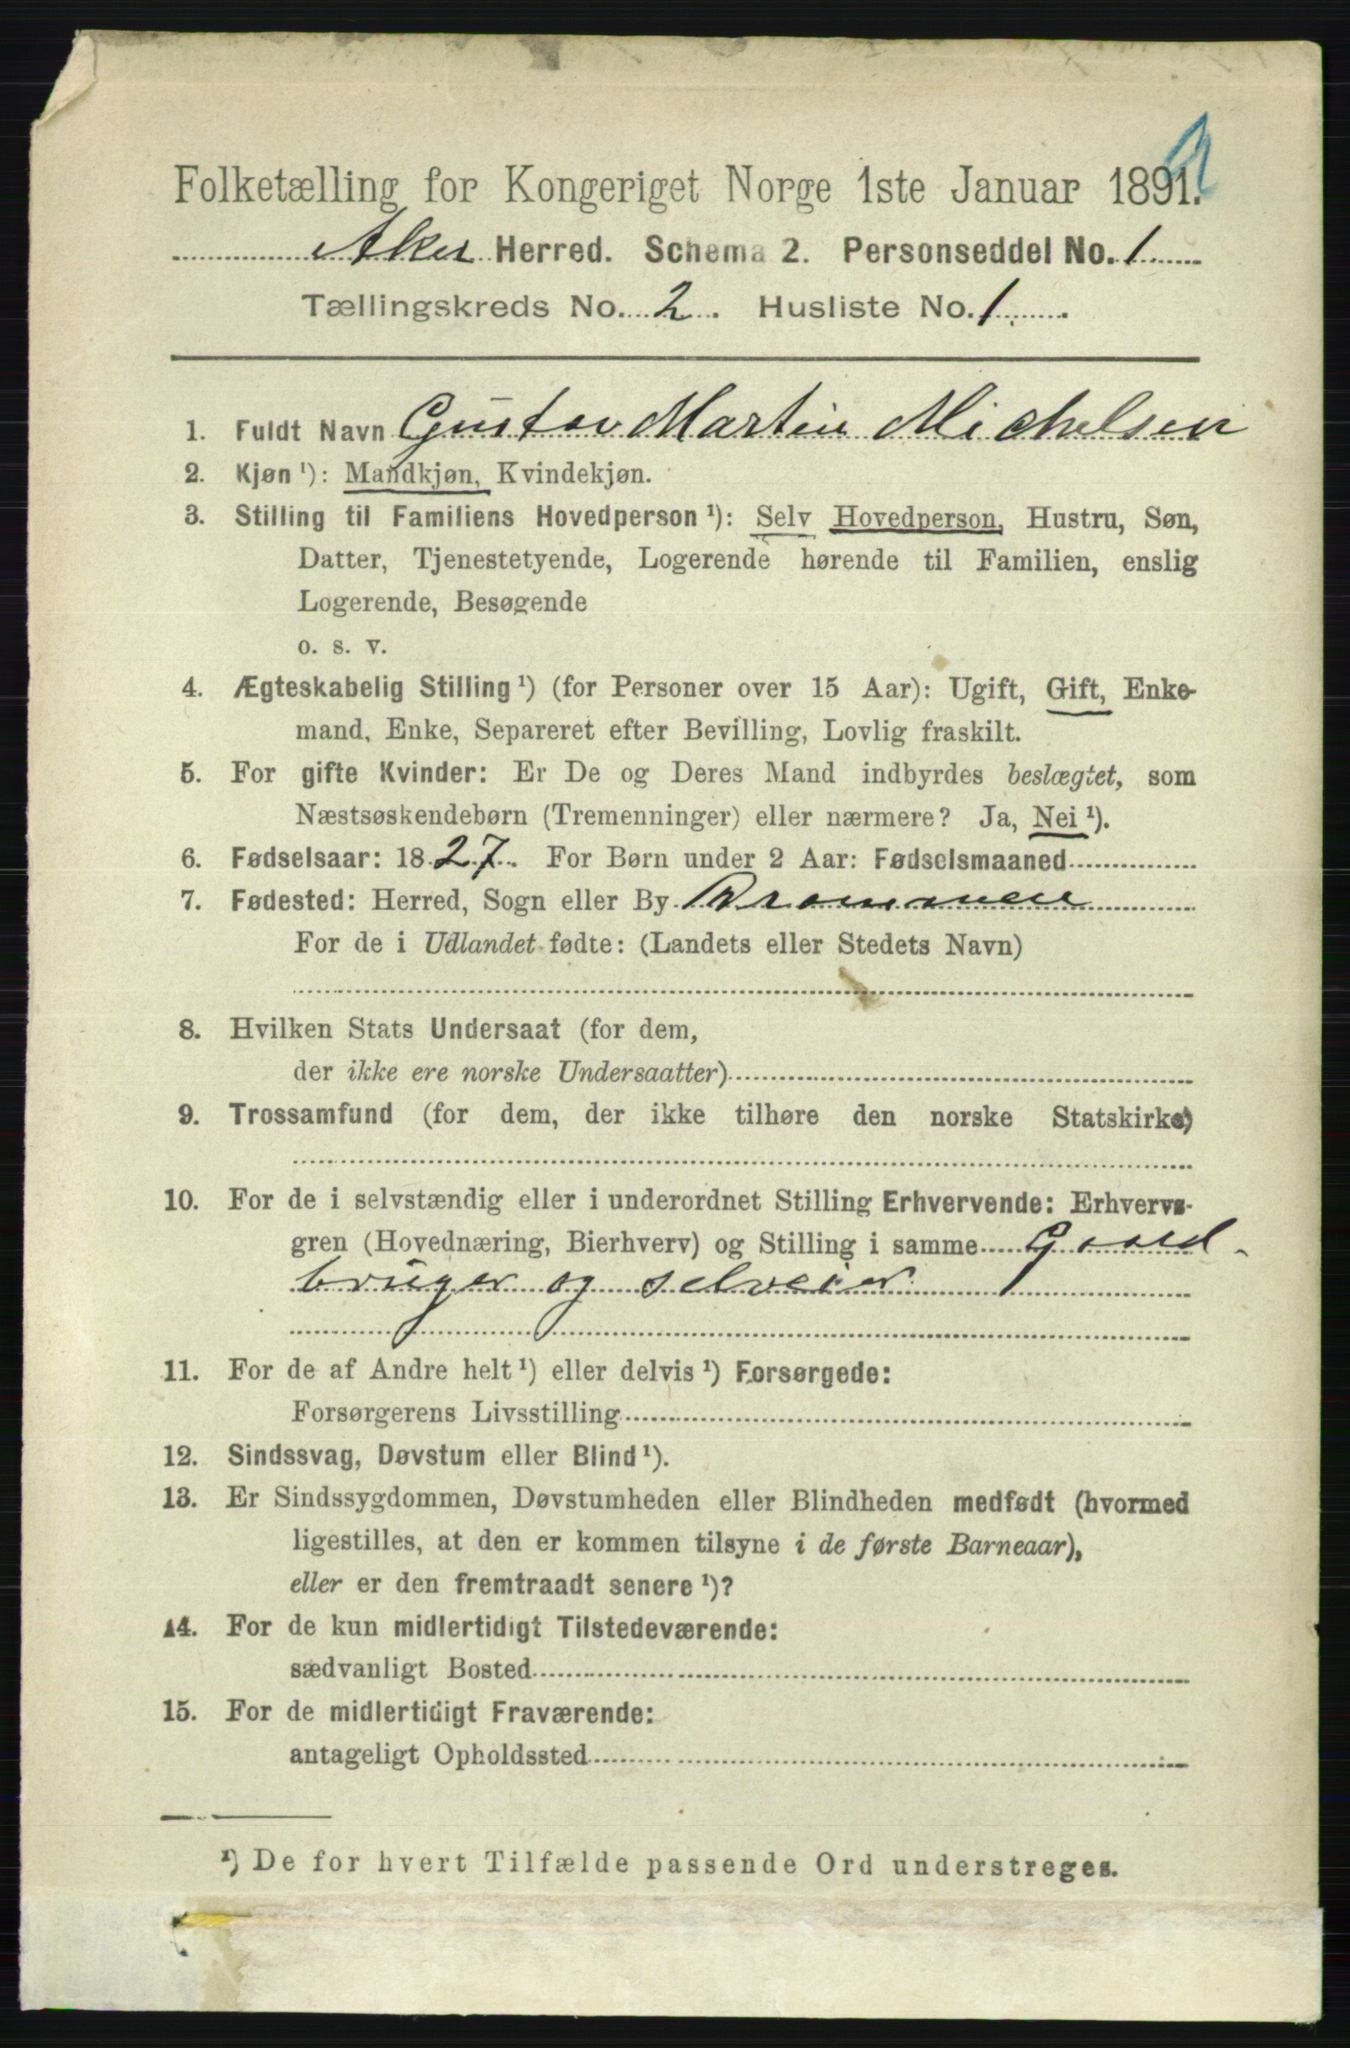 Folketælling for Kongeriget Norge 1ste Januar 1891.
Aker Herred. Schema 2. Personseddel No. 1
Tællingskreds No. 2. Husliste No. 1
1. Fuldt Navn Gustav Martin Michelsen
2. Kjøn ¹): Mandkjøn, Kvindekjøn.
3. Stilling til Familiens Hovedperson ¹): Selv Hovedperson, Hustru, Søn,
Datter, Tjenestetyende, Logerende hørende til Familien, enslig
Logerende, Besøgende
o. s. v.
4. Ægteskabelig Stilling ¹) (for Personer over 15 Aar): Ugift, Gift, Enke-
mand, Enke, Separeret efter Bevilling, Lovlig fraskilt.
5. For gifte Kvinder: Er De og Deres Mand indbyrdes beslægtet, som
Næstsøskendebørn (Tremenninger) eller nærmere? Ja, Nei ¹).
6. Fødselsaar: 1827. For Børn under 2 Aar: Fødselsmaaned
7. Fødested: Herred, Sogn eller By Drammen
For de i Udlandet fødte: (Landets eller Stedets Navn)
8. Hvilken Stats Undersaat (for dem,
der ikke ere norske Undersaatter)
9. Trossamfund (for dem, der ikke tilhøre den norske Statskirke)
10. For de i selvstændig eller i underordnet Stilling Erhvervende: Erhvervs-
gren (Hovednæring, Bierhverv) og Stilling i samme Gaard-
bruger og selveier
11. For de af Andre helt ¹) eller delvis ¹) Forsørgede:
Forsørgerens Livsstilling
12. Sindssvag, Døvstum eller Blind ¹).
13. Er Sindssygdommen, Døvstumheden eller Blindheden medfødt (hvormed
ligestilles, at den er kommen tilsyne i de første Barneaar),
eller er den fremtraadt senere ¹)?
14. For de kun midlertidigt Tilstedeværende:
sædvanligt Bosted
15. For de midlertidigt Fraværende:
antageligt Opholdssted
¹) De for hvert Tilfælde passende Ord understreges.